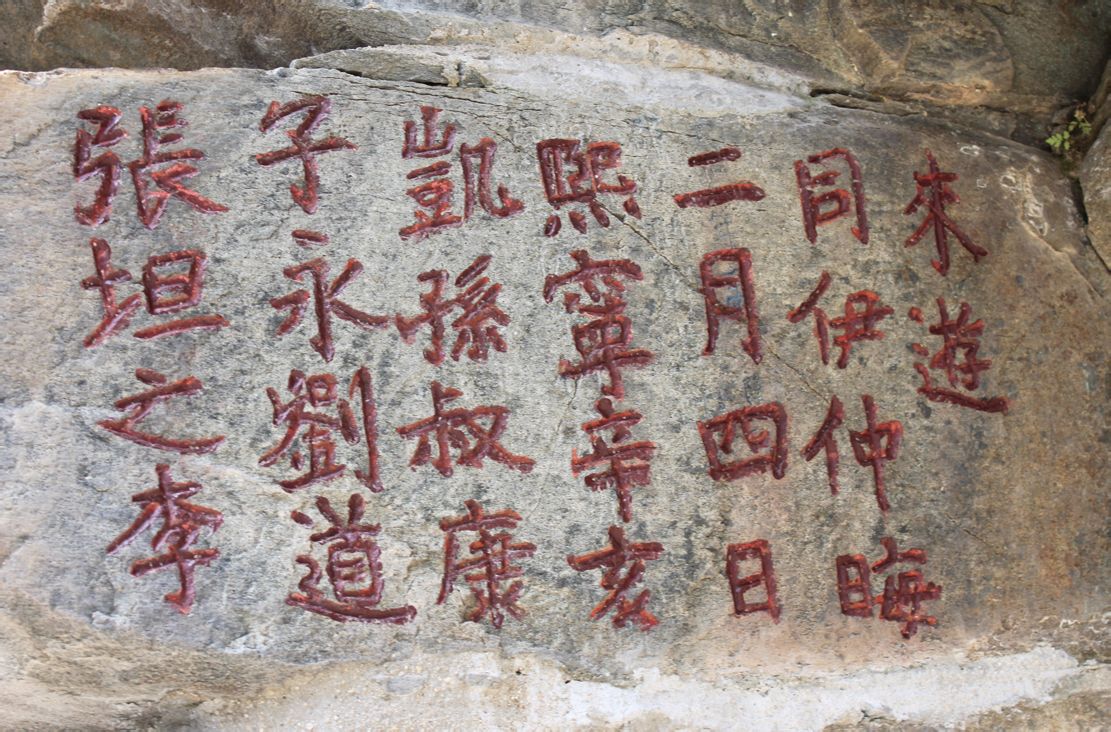 張坦之李
子永劉道
凱孫叔康
熙寧辛亥
二月四日
同伊仲晦
來遊